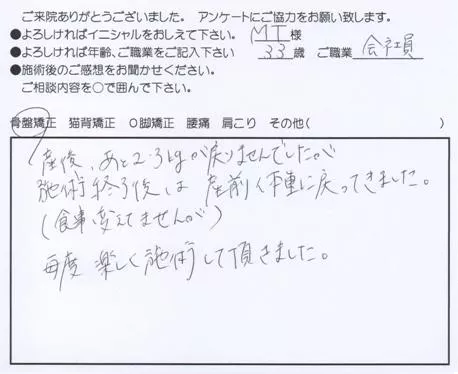 ご来院ありがとうございました。 アンケートにご協力をお願い致します。
●よろしければイニシャルをおしえて下さい。 MT 様
●よろしければ年齢、ご職業をご記入下さい 33 歳 ご職業 会社員
●施術後のご感想をお聞かせください。
ご相談内容を○で囲んで下さい。
骨盤矯正 猫背矯正 O脚矯正 腰痛 肩こり その他( )
産後、あと2・3kgが戻りませんでしたが
施術終了後は 産前の体重に戻ってきました。
(食事変えてませんが)
毎度 楽しく施術して頂きました。